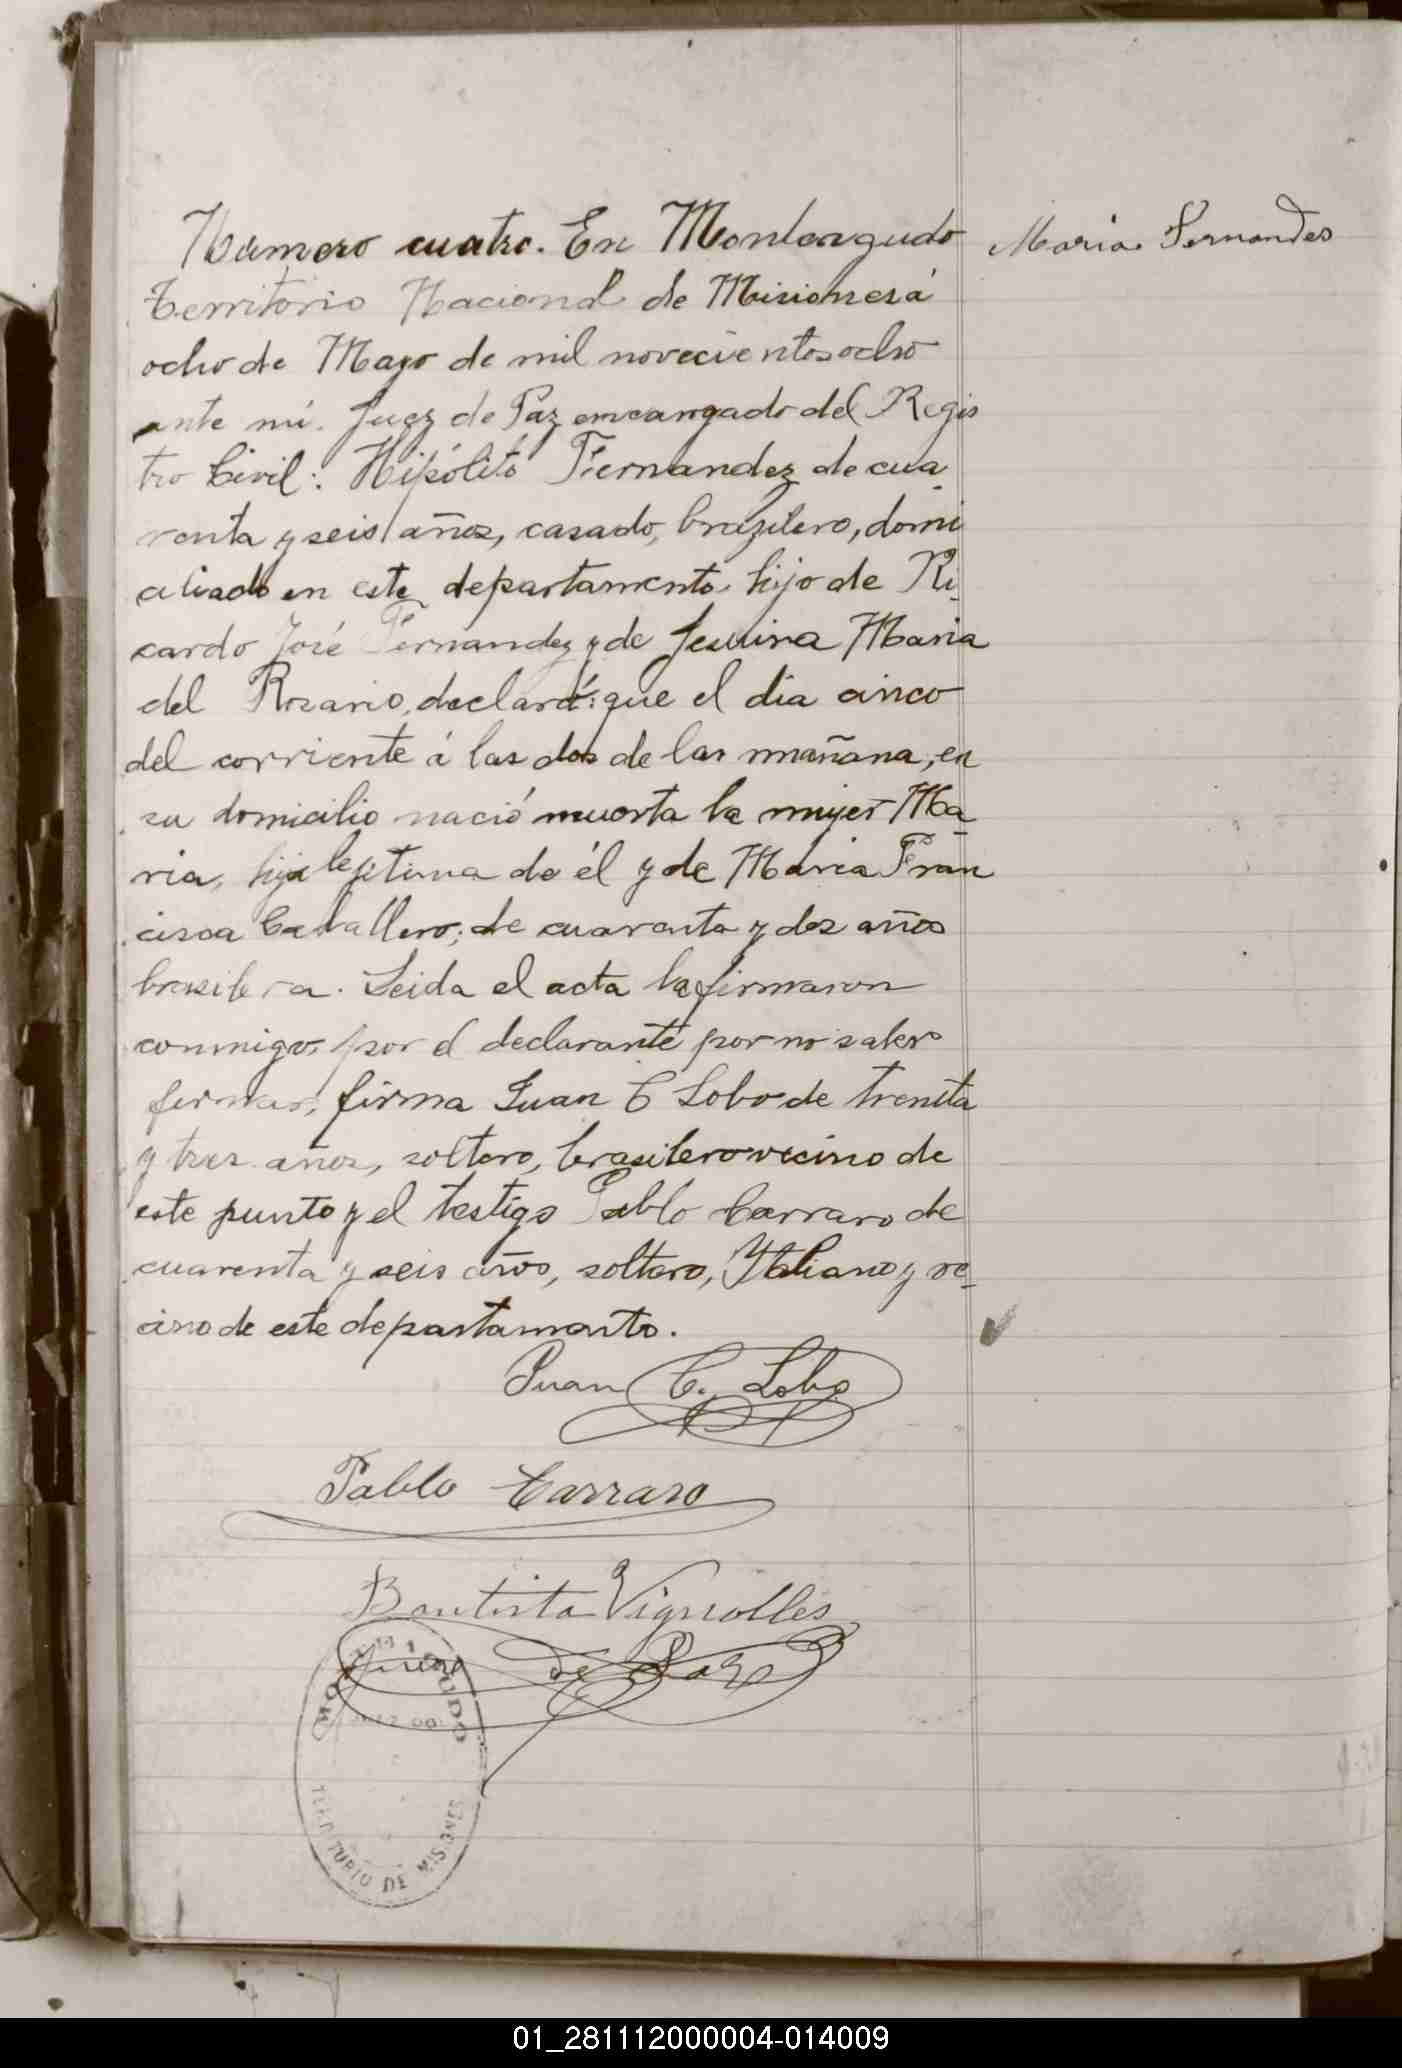 Número cuatro. En Monteagudo
Maria Fernandes
Territorio Nacional de Misiones á
ocho de Mayo de mil novecientos ocho
ante mi. Juez de Paz encargado del Regis
tro Civil: Hipólito Fernandez de cua
renta y seis años, casado, brazilero, domi
ciliado en este departamento, hijo de Ri_
cardo José Fernandez y de Maria
del Rosario, declaró: que el dia cinco
del corriente á las dos de las mañana, en
su domicilio nació muerta la mujer Ma_
ria, hija lejitima de él y de Maria Fran
cisca Caballero; de cuarenta y dos años
brasilera. Leida el acta la firmaron
conmigo, por el declarante por no saber
firmar, firma Juan C Lobo de trenita
y tres años, soltero, brasilero vecino de
este punto y el testigo Pablo Carraro de
cuarenta y seis años, soltero, Ytaliano y ve_
cino de este departamento.
Juan C. Lobo
Pablo Carraro
Bautista Vignolles
Juez de Paz
MONTEAGUDO
TERRITORIO DE MISIONES
01_281112000004-014009